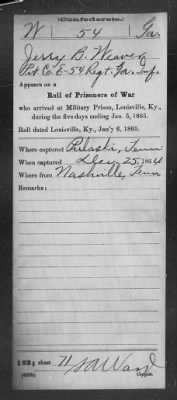 (Confederate.)
W 54 Ga.
Jerry B. Weaver
Pvt Co. E-54 Regt. Ga. Inf.
Appears on a
Roll of Prisoners of War
who arrived at Military Prison, Louisville, Ky.,
during the five days ending Jan. 5, 1865.
Roll dated Louisville, Ky., Jan'y 6, 1865.
Where captured Pulaski, Tenn
When captured Dec. 25, 1864
Where from Nashville, Tenn
Remarks:
sheet 71
Copyist.